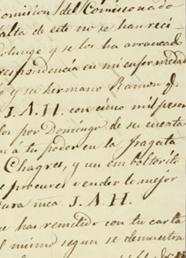 omision del Comisionado
alta de este no se han reci
y se los ha arrancad
respondencia en mi enfermedad
y su hermano Ramon q.
J. A. H. con cinco mil pesos
los por Domingo de su cuenta
á tu poder en la fragata
Chagres, y un emboltorito
procures vender lo mejor
J. A. H.
has remitido con tu carta
mismo segun se demuestra